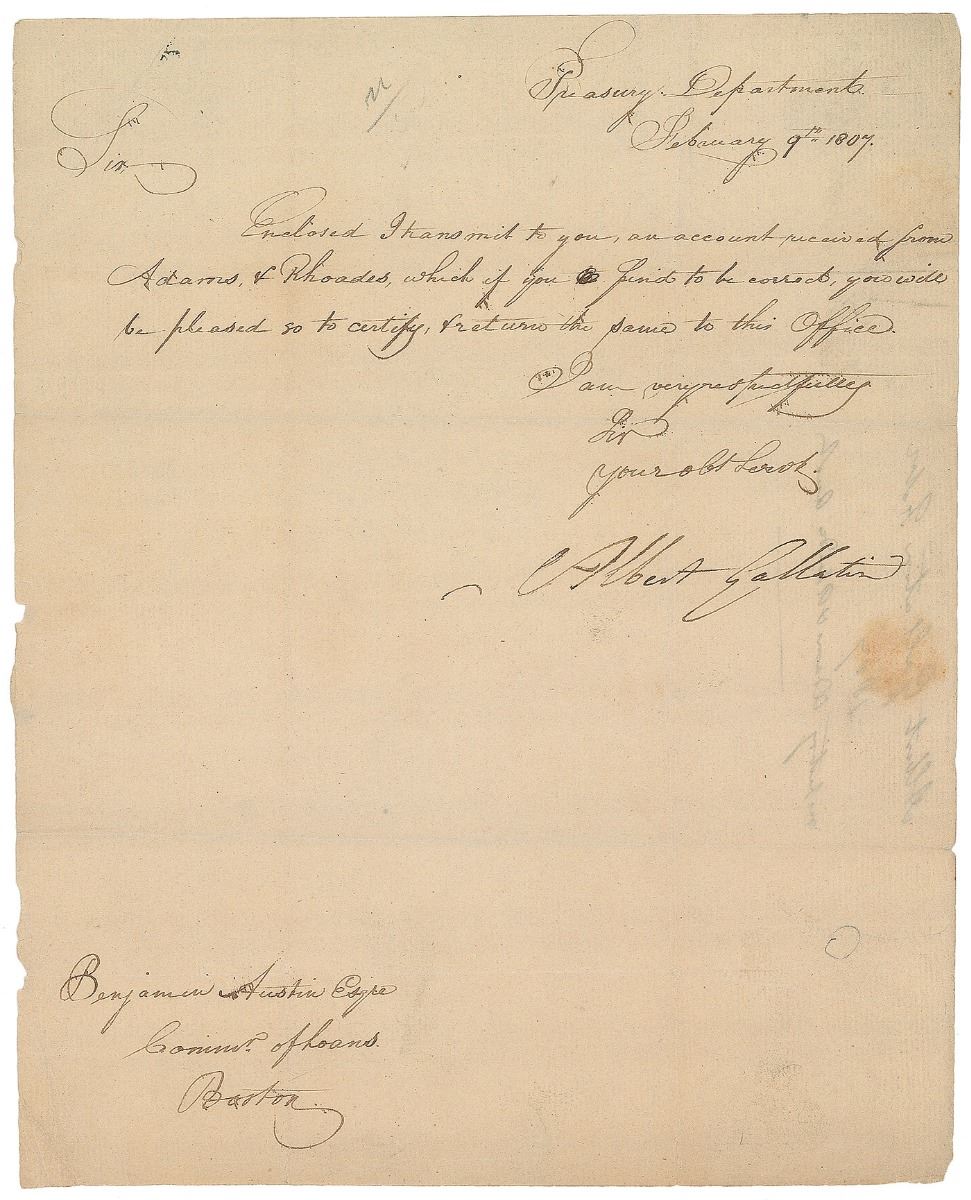 Treasury Department
February 9th 1807.
Sir,
Enclosed I transmit to you, an account received from
Adams, & Rhoades, which if you find to be correct, you will
be pleased so to certify, & return the same to this Office.
I am very respectfully
Sir
Your obt Servt.
Albert Gallatin
Benjamin Austin Esqre
Commr. of Loans.
Boston